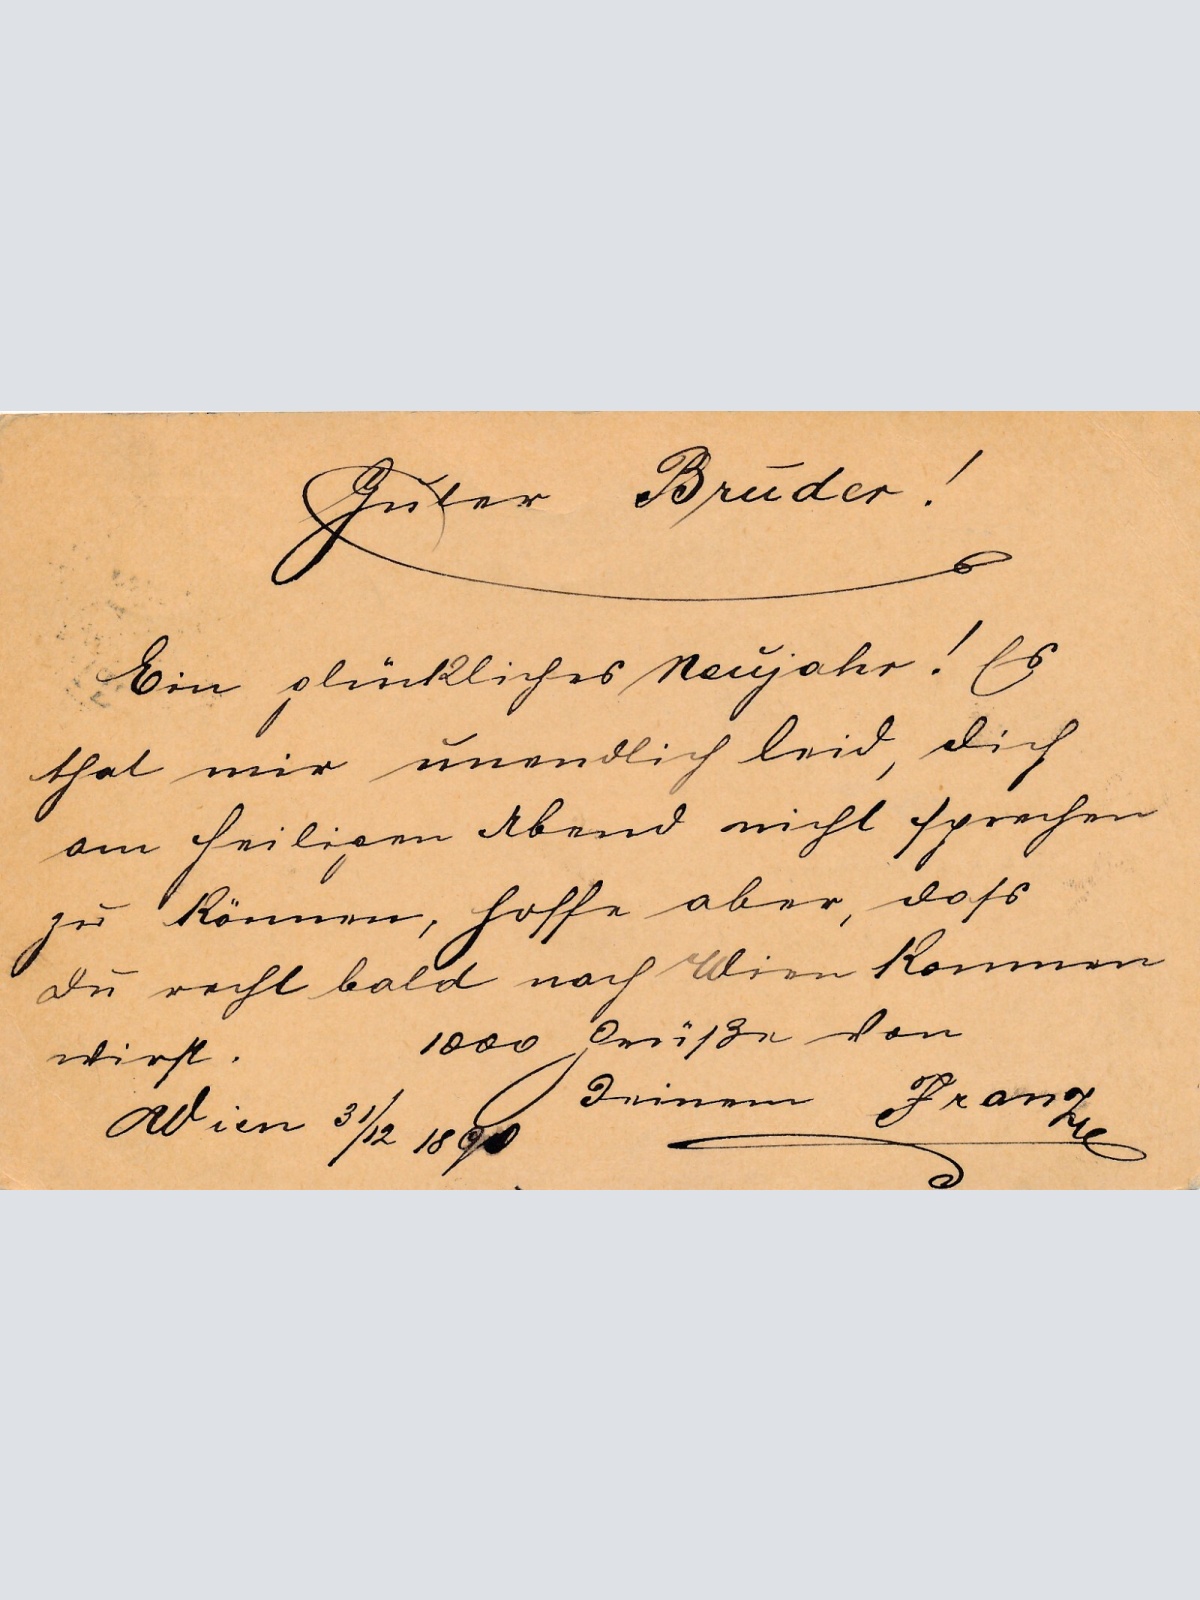 Guter Bruder!
Ein glückliches Neujahr! Es
that mir unendlich leid, Dich
am heiligen Abend nicht sprechen
zu können, hoffe aber, dass
Du recht bald nach Wien kommen
wirst. 1000 Grüße von
Wien 31/12 1890 Deinem Franz